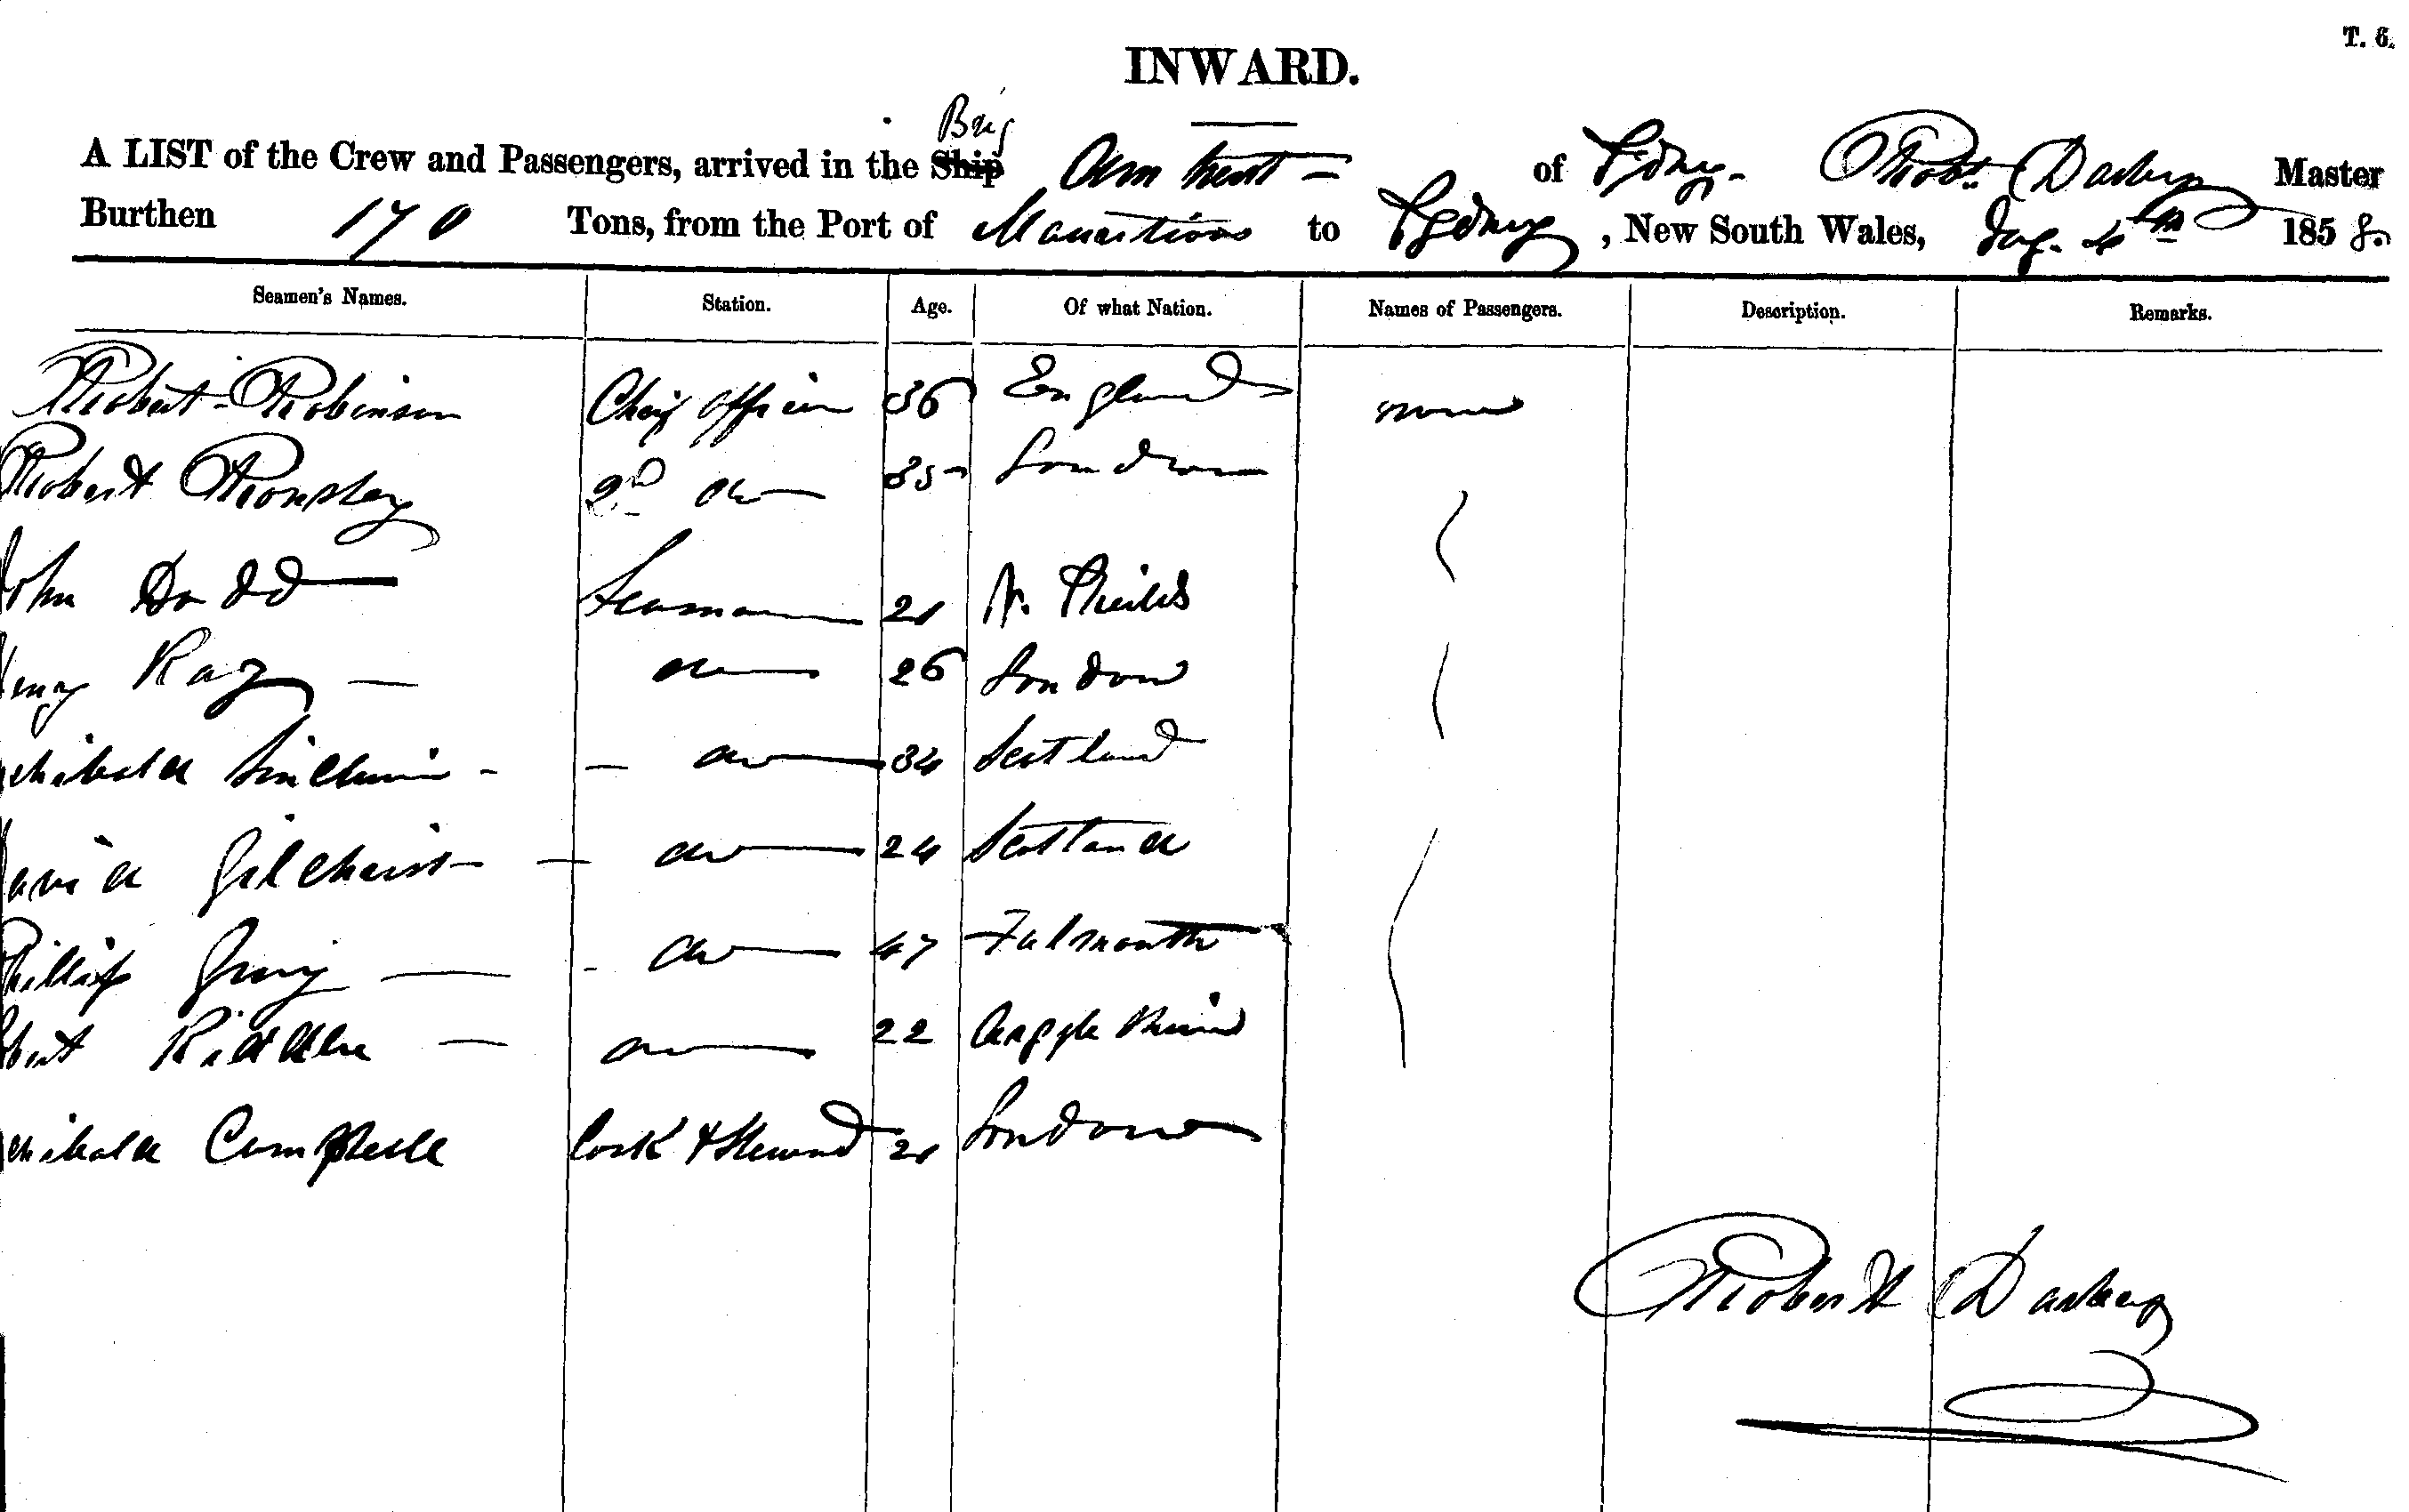 T. 6.
INWARD.
Brig
A LIST of the Crew and Passengers, arrived in the Ship of Sydney. Robt. Darley Master
Burthen 170 Tons, from the Port of Mauritius to Sydney, New South Wales, 4th 1858.
Seamen's Names. Station. Age. Of what Nation. Names of Passengers. Description. Remarks.
Robert Robinson Chief Officer 36 England none
Robert 2D do 35 London
John Dodd Seaman 21 N. Shields
Ray do 26 London
Sinclair do 34 Scotland
David Gilchrist do 24 Scotland
Phillip Gray do 47 Falmouth
Riddle do 22 Argyle
Campbell Cook & Steward 21 London
Robert Darley